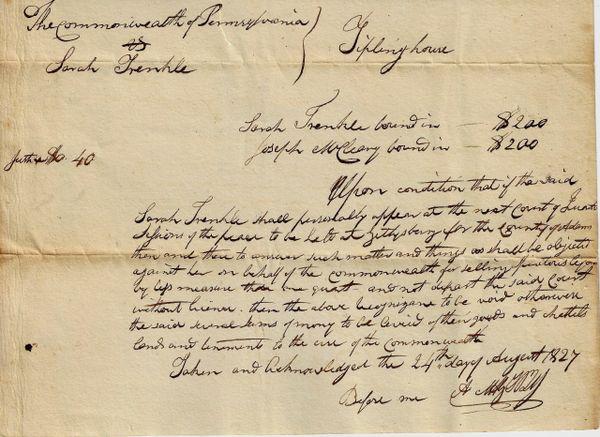 The Commonwealth of Pennsylvania
vs
Sarah Trenkle
Tipling house
Sarah Trenkle bound in — $200
Joseph McCleary bound in — $200
40
Upon condition that if the said
Sarah Trenkle shall personally appear at the next Court of Quarter
Sessions of the peace to be held at Gettysburg for the County of Adams
then and there to answer such matter and things as shall be objected
against her on behalf of the commonwealth for selling spiritous
by less measure than one quart and not depart the said Court
without licence. then the above recognizance to be void otherwise
the said several sums of money to be levied of their goods and chattels
lands and tenements to the use of the Commonwealth
Taken and acknowledged the 24th day of August 1827
Before me